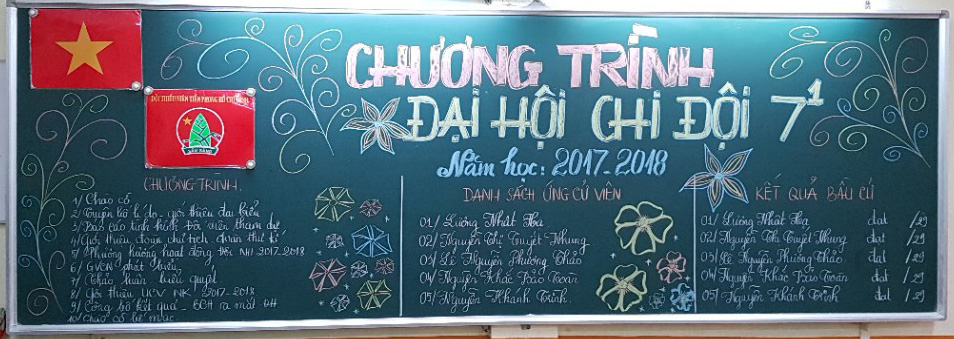 ĐỘI THIẾU NIÊN TIỀN PHONG HỒ CHÍ MINH
SẴN SÀNG
CHƯƠNG TRÌNH
ĐẠI HỘI CHI ĐỘI 7¹
Năm học: 2017-2018
CHƯƠNG TRÌNH.
1/ Chào cờ
2/ Tuyên bố lí do - giới thiệu đại biểu
3/ Báo cáo tình hình Đội viên tham dự
4/ Giới thiệu đoàn chủ tịch, đoàn thư kí
5/ Phương hướng hoạt động Đội NH 2017-2018
6/ GVCN phát biểu
7/ Thảo luận, biểu quyết
8/ Giới thiệu UCV NK 2017-2018
9/ Công bố kết quả - BCH ra mắt ĐH
10/ Chào cờ bế mạc
DANH SÁCH ỨNG CỬ VIÊN
01/ Lương Nhật Hạ
02/ Nguyễn Thị Tuyết Nhung
03/ Lê Nguyễn Phương Thảo
04/ Nguyễn Khắc Bảo Toàn
05/ Nguyễn Khánh Trình
KẾT QUẢ BẦU CỬ
01/ Lương Nhật Hạ đạt /29
02/ Nguyễn Thị Tuyết Nhung đạt /29
03/ Lê Nguyễn Phương Thảo đạt /29
04/ Nguyễn Khắc Bảo Toàn đạt /29
05/ Nguyễn Khánh Trình đạt /29